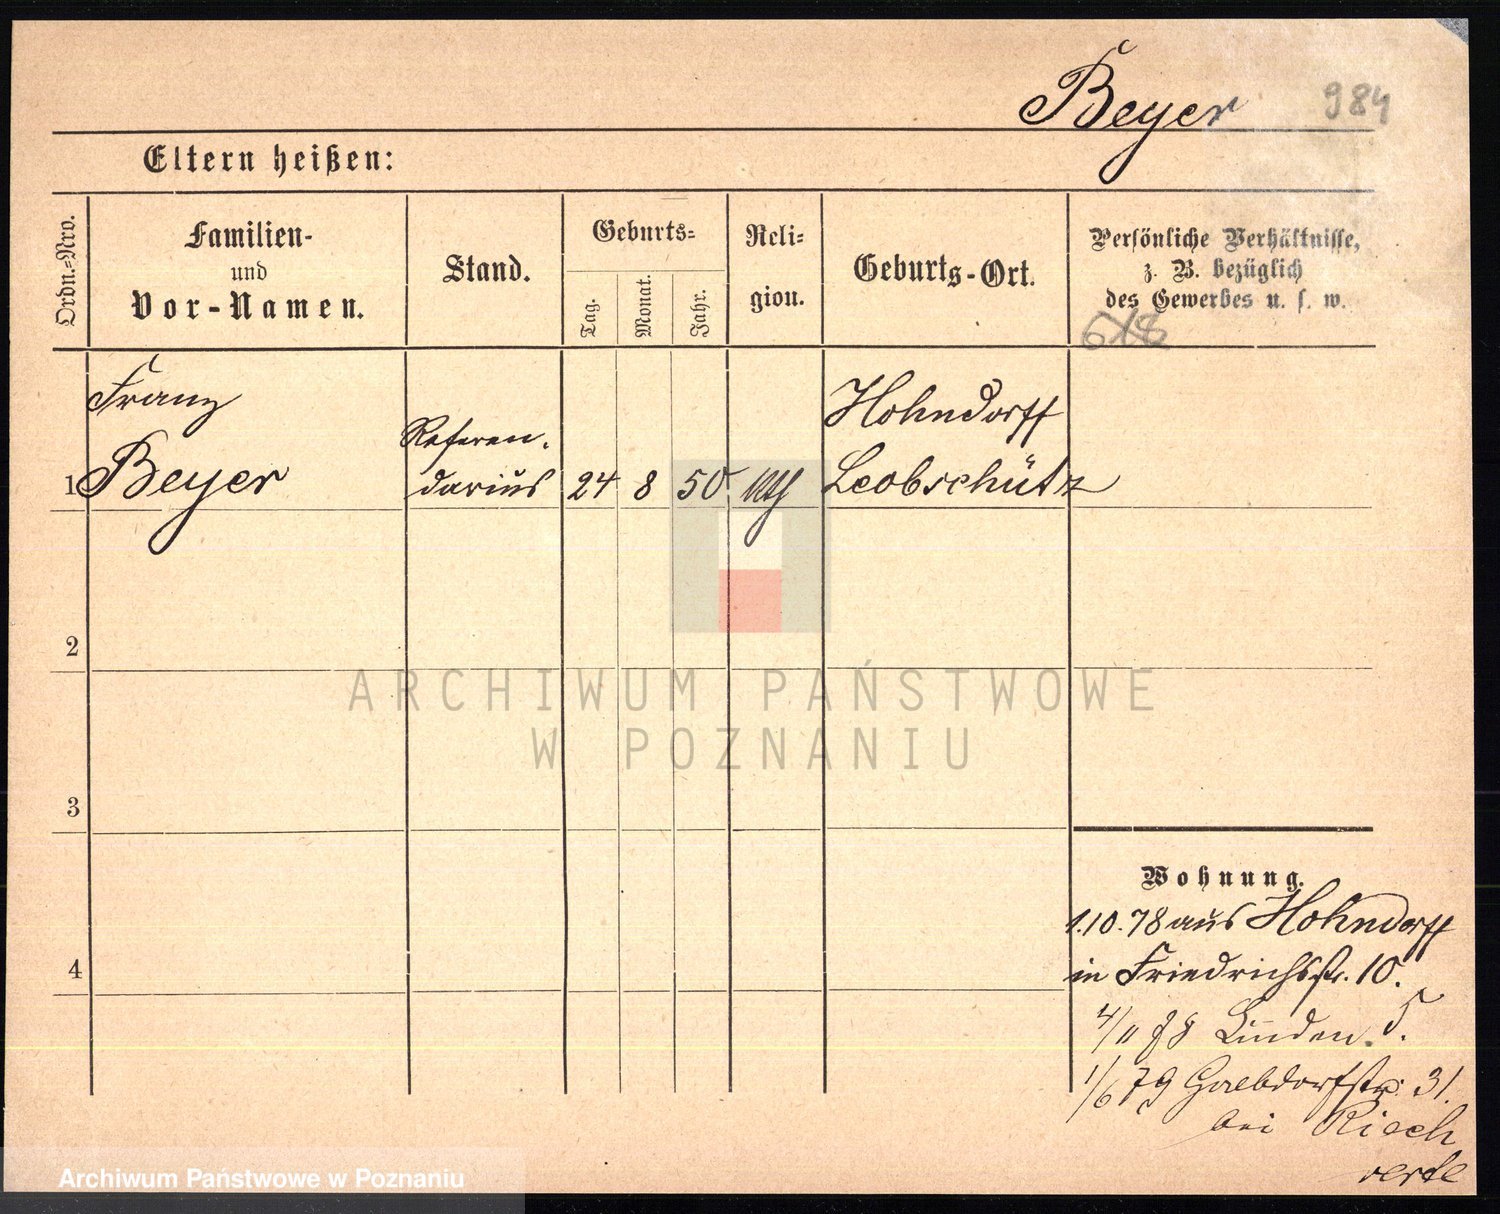 Beyer 984
Eltern heißen:
Ordn.-Nro.
Familien-
und
Vor-Namen.
Stand.
Geburts-
Tag.
Monat.
Jahr.
Reli-
gion.
Geburts-Ort.
Persönliche Verhältnisse,
z. B. bezüglich
des Gewerbes u. s. w.
618
Franz
Beyer
1
Referen-
darius
24 8 50 kth
Hohndorff
Leobschütz
2
3
4
Wohnung.
1.10.78 aus Hohndorff
in Friedrichsstr. 10.
4/11 78 Linden. 5.
1/6 79 Halbdorfstr. 31.
bei
verte
ARCHIWUM PAŃSTWOWE
W POZNANIU
Archiwum Państwowe w Poznaniu